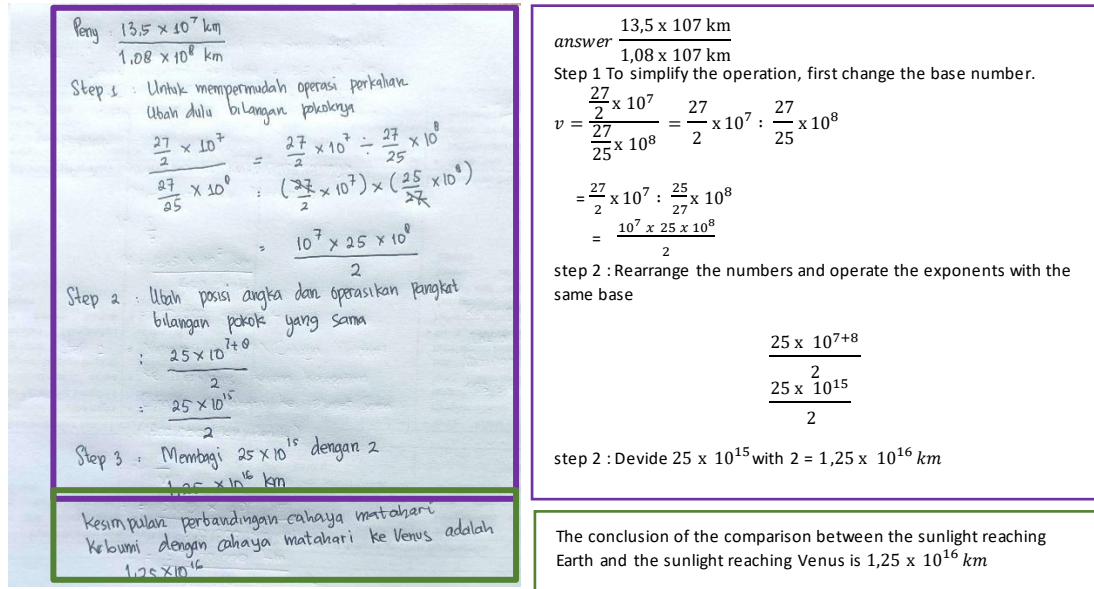 Peny : 13,5 × 10⁷ km
1,08 × 10⁸ km
Step 1 : Untuk mempermudah operasi perkalian
Ubah dulu bilangan pokoknya
27/2 × 10⁷ = 27/2 × 10⁷ ÷ 27/25 × 10⁸
27/25 × 10⁸ : (27/2 × 10⁷) × (25/27 × 10⁸)
= 10⁷ × 25 × 10⁸
2
Step 2 : Ubah posisi angka dan operasikan pangkat
bilangan pokok yang sama
: 25 × 10⁷⁺⁸
2
: 25 × 10¹⁵
2
Step 3 : Membagi 25 × 10¹⁵ dengan 2
1,25 × 10¹⁶ km
Kesimpulan perbandingan cahaya matahari
Kebumi dengan cahaya matahari ke Venus adalah
1,25 × 10¹⁶
answer 13,5 x 107 km
1,08 x 107 km
Step 1 To simplify the operation, first change the base number.
v = 27/2 x 10⁷ / 27/25 x 10⁸ = 27/2 x 10⁷ : 27/25 x 10⁸
= 27/2 x 10⁷ : 25/27 x 10⁸
= 10⁷ x 25 x 10⁸
2
step 2 : Rearrange the numbers and operate the exponents with the
same base
25 x 10⁷⁺⁸
2
25 x 10¹⁵
2
step 2 : Devide 25 x 10¹⁵ with 2 = 1,25 x 10¹⁶ km
The conclusion of the comparison between the sunlight reaching
Earth and the sunlight reaching Venus is 1,25 x 10¹⁶ km